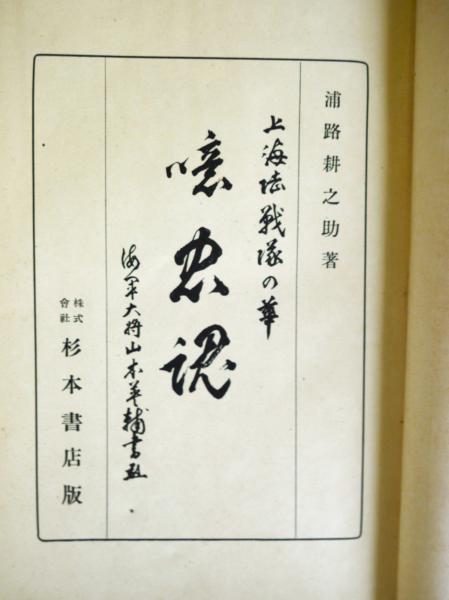 浦路耕之助著
上海陸戦隊の華
噫忠魂
海軍大将山本英輔書
株式會社
杉本書店版